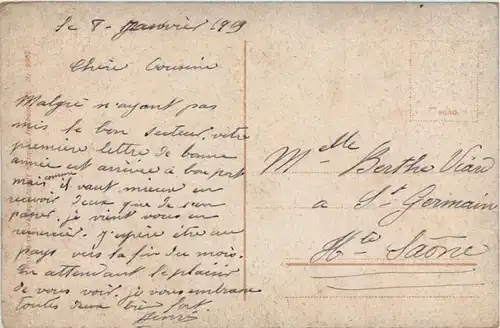 Le 8 Janvier 1919
Chère Cousine
Malgré n'ayant pas
mis le bon secteur, votre
première lettre de bonne
année est arrivée à bon port
mais, comme il vaut mieux en
recevoir deux que de s'en
passer, je vient vous en
remercier. J'espère être au
pays vers la fin du mois.
En attendant le plaisir
de vous voir, je vous embrasse
toutes deux bien fort.
Henri
Melle Berthe Viard
a St Germain
Hte Saône